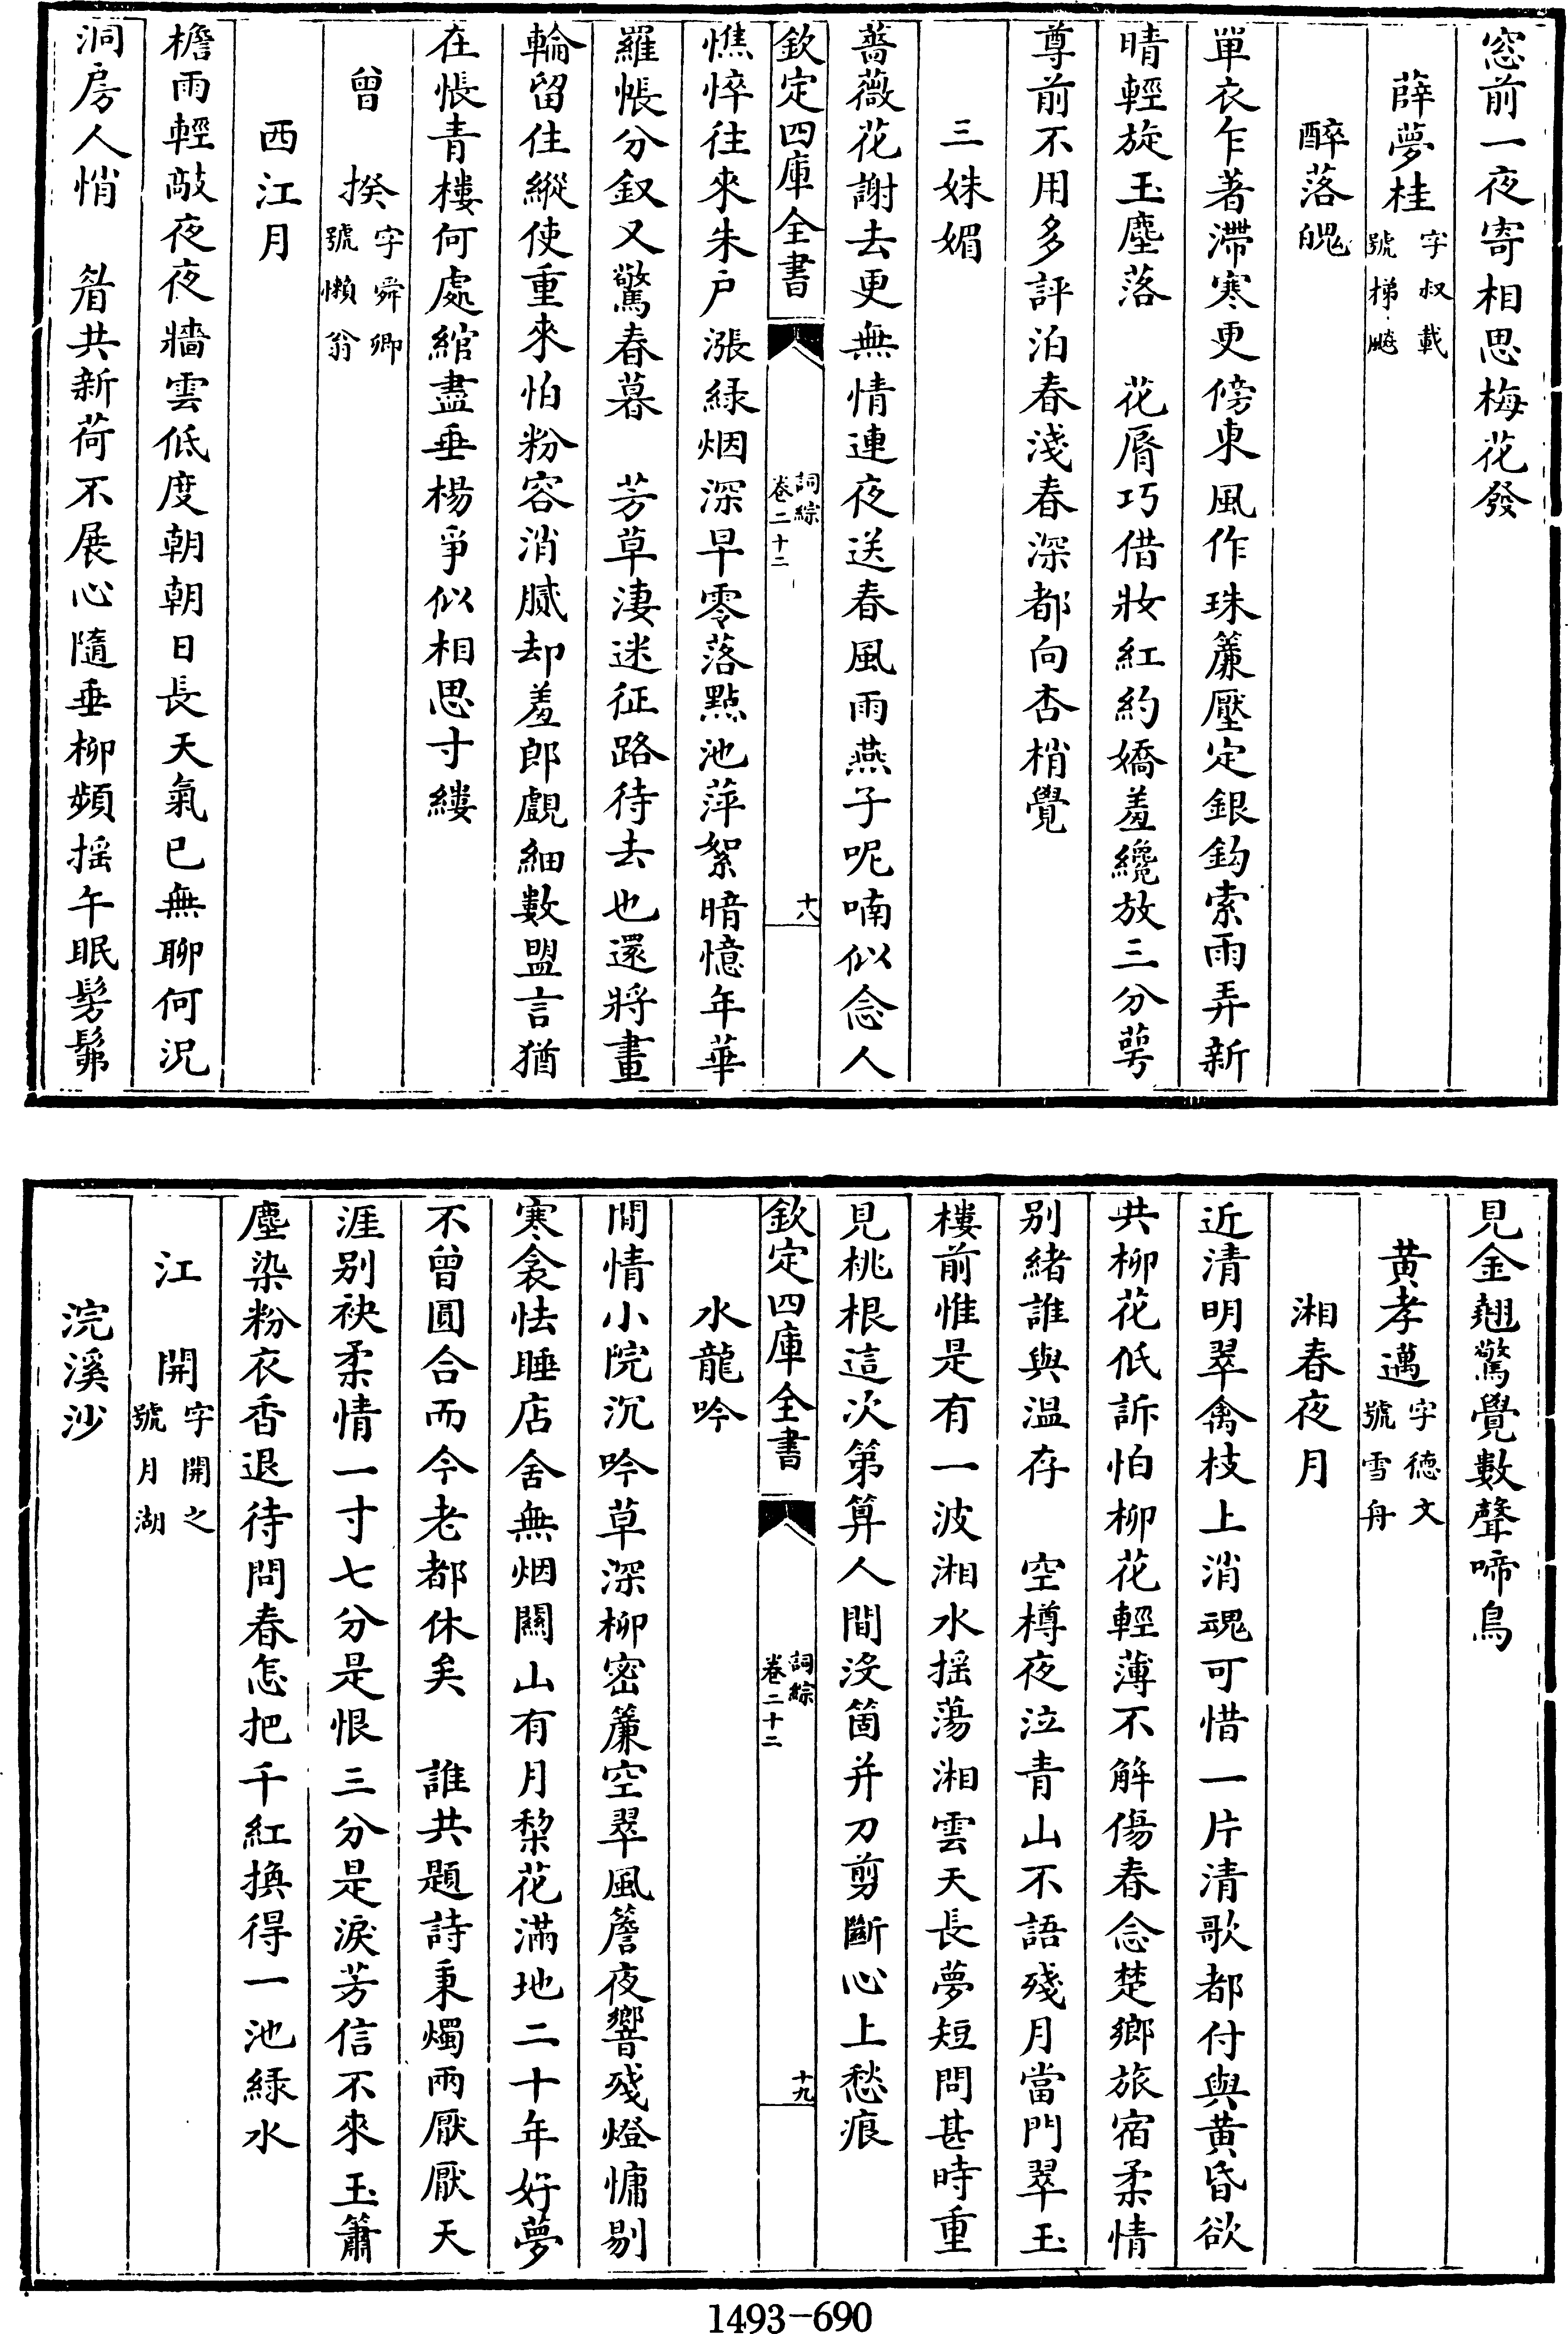 窓前一夜寄相思梅花發
薛夢桂字叔載號梯飈
醉落魄
單衣乍著滯寒更傍東風作珠簾壓定銀鈎索雨弄新
晴輕旋玉塵落　花脣巧借妝紅約嬌羞纔放三分萼
尊前不用多評泊春淺春深都向杏梢覺
三姝媚
薔薇花謝去更無情連夜送春風雨燕子呢喃似念人
欽定四庫全書
詞綜
卷二十二
十八
憔悴往來朱户漲緑烟深早零落㸃池萍絮暗憶年華
羅帳分釵又驚春暮　芳草淒迷征路待去也還將畫
輪留住縱使重來怕粉容消膩却羞郎覷細數盟言猶
在悵青樓何處綰盡垂楊爭似相思寸縷
曾揆字舜卿號懶翁
西江月
檐雨輕敲夜夜牆雲低度朝朝日長天氣已無聊何況
洞房人悄　眉共新荷不展心隨垂柳頻揺午眠髣髴
見金翹驚覺數聲啼鳥
黄孝邁字德文號雪舟
湘春夜月
近清明翠禽枝上消魂可惜一片清歌都付與黄昏欲
共柳花低訴怕柳花輕薄不解傷春念楚鄉旅宿柔情
别緒誰與温存　空樽夜泣青山不語殘月當門翠玉
樓前惟是有一波湘水揺蕩湘雲天長夢短問甚時重
見桃根這次第算人間没箇并刀剪斷心上愁痕
欽定四庫全書
詞綜
卷二十二
十九
水龍吟
閒情小院沉吟草深柳密簾空翠風簷夜響殘燈慵剔
寒衾怯睡店舍無烟關山有月棃花滿地二十年好夢
不曾圓合而今老都休矣　誰共題詩秉燭兩厭厭天
涯别袂柔情一寸七分是恨三分是淚芳信不來玉簫
塵染粉衣香退待問春怎把千紅換得一池緑水
江開字開之號月湖
浣溪沙
1493-690